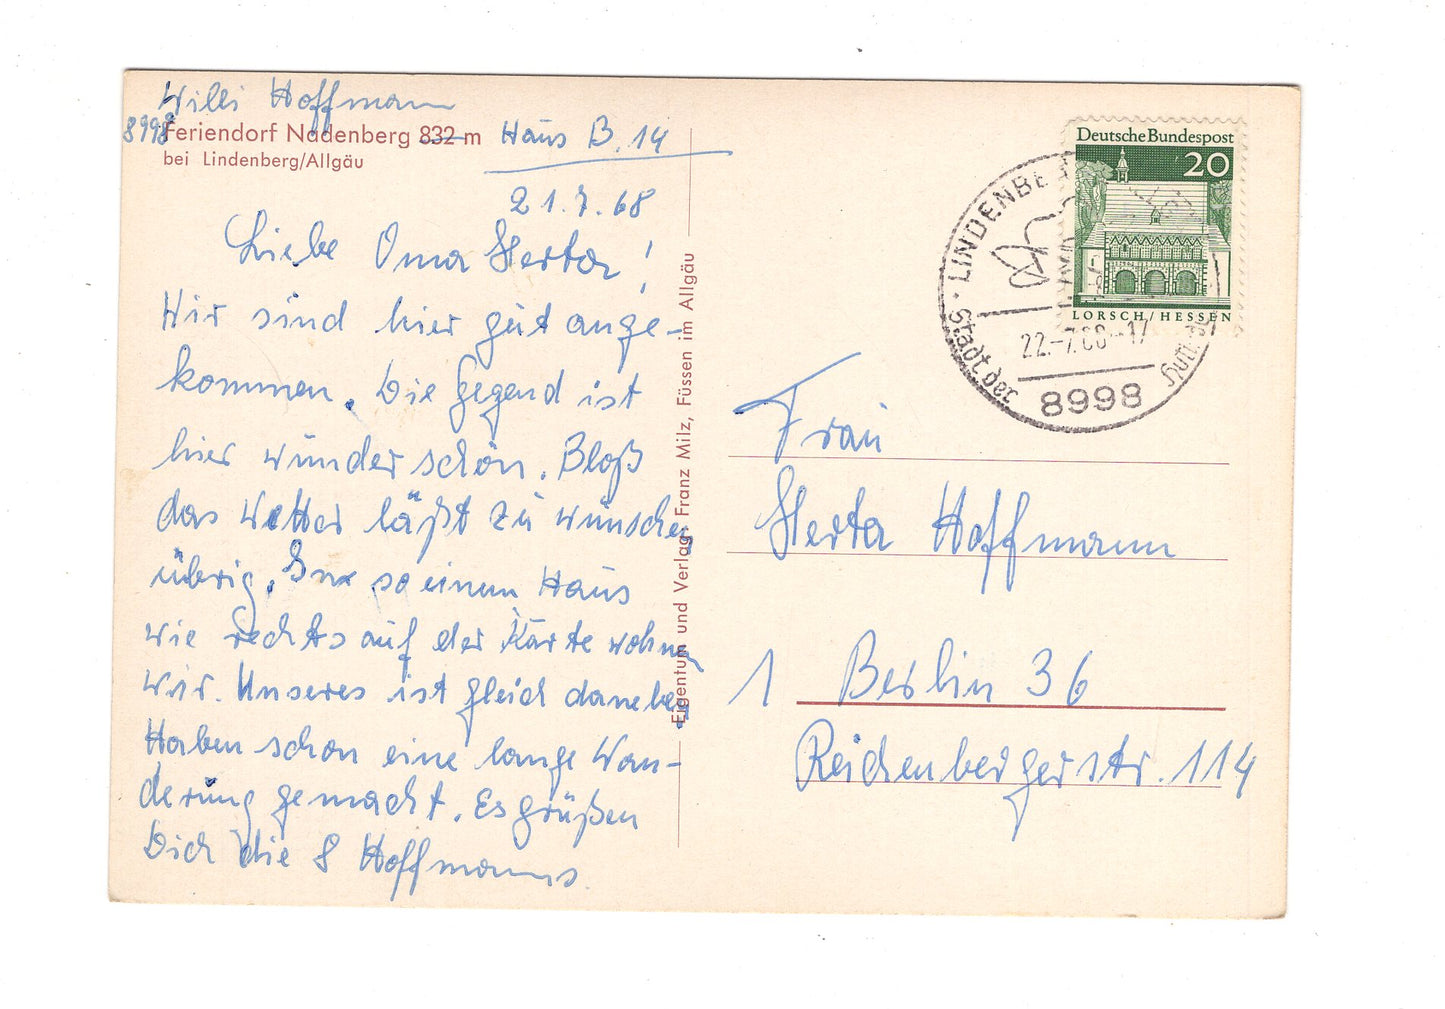 Willi Hoffmann
8998 Feriendorf Nadenberg 832 m Haus B. 14
bei Lindenberg/Allgäu
21.7.68
Liebe Oma Herta!
Wir sind hier gut ange-
kommen. Die Gegend ist
hier wunderschön. Bloß
das Wetter läßt zu wünschen
übrig. In so einem Haus
wie rechts auf der Karte wohnen
wir. Unseres ist gleich daneben
Haben schon eine lange Wan-
derung gemacht. Es grüßen
Dich die 8 Hoffmanns.
Eigentum und Verlag: Franz Milz, Füssen im Allgäu
Deutsche Bundespost
20
LORSCH/HESSEN
LINDENBE
Stadt der
22.-7.68-17
8998
Frau
Herta Hoffmann
1 Berlin 36
Reichenbergerstr. 114